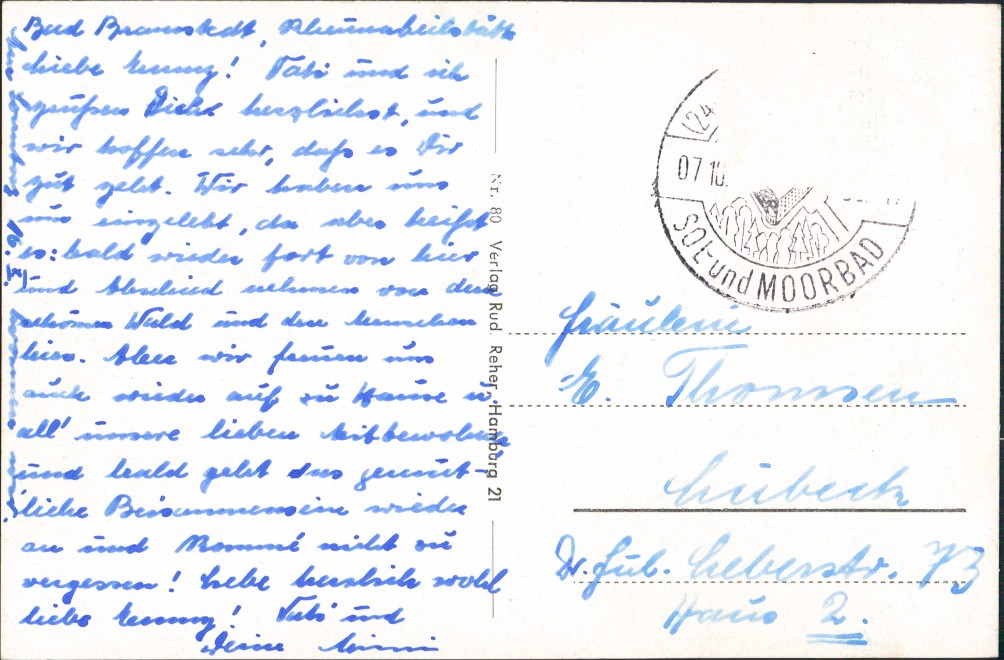 Bad Bramstedt, Rheumaheilstätte
Liebe Emmy! Tati und ich
grüßen Dich herzlichst, und
wir hoffen sehr, daß es Dir
gut geht. Wir haben uns
nun eingelebt, da aber heißt
es: bald wieder fort von hier
und Abschied nehmen von dem
schönen Wald und den Menschen
hier. Aber wir freuen uns
auch wieder auf zu Hause u.
all' unsere lieben Mitbewohner
und bald geht das gemüt-
liche Beisammensein wieder
an und Rommé nicht zu
vergessen! Lebe herzlich wohl
liebe Emmy! Tati und
Deine Mimi
Nr. 80 Verlag Rud. Reher, Hamburg 21
(24
07.10.
SOL- und MOORBAD
Fräulein
E. Thomsen
Lübeck
Dr. Jul. Leberstr. 73
Haus 2.